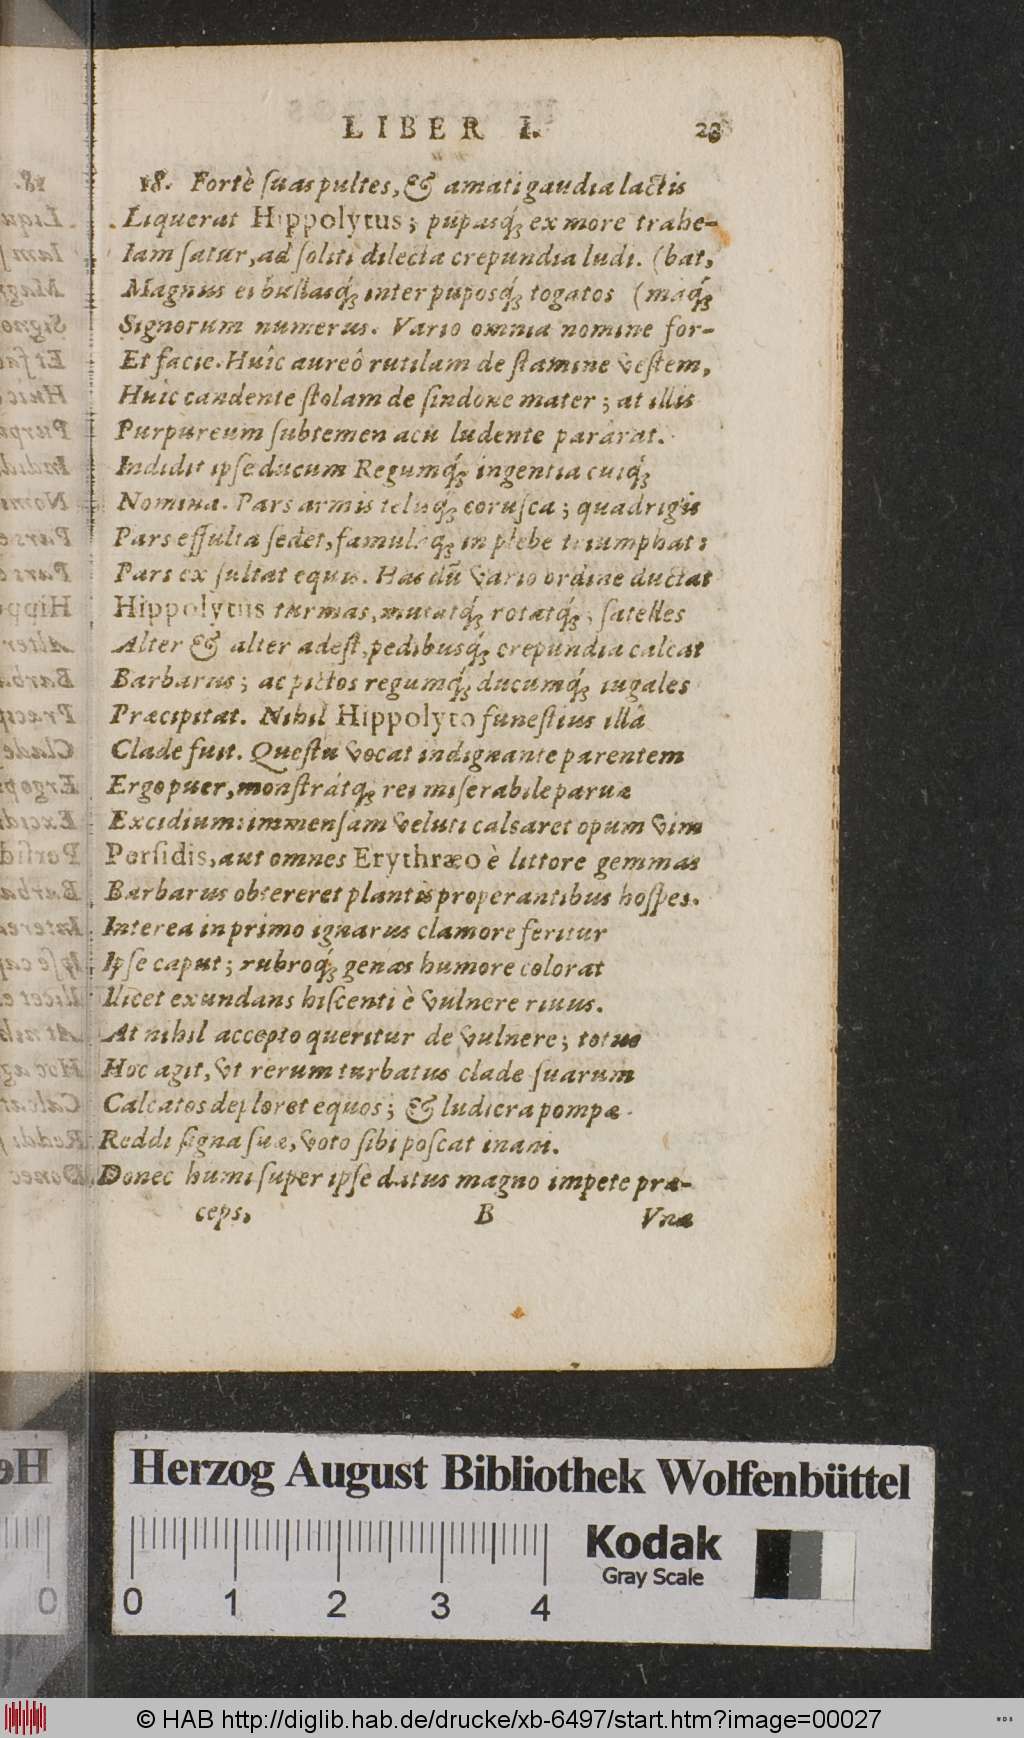 LIBER I. 23
18. Fortè ſuas pultes, & amati gaudia lactis
Liquerat Hippolytus; pupasq́; ex more trahe-
Iam ſatur, ad ſoliti dilecta crepundia ludi. (bat,
Magnus ei bullaisq́; inter puposq́; togatos (maq́;
Signorum numerus. Vario omnia nomine for-
Et facie. Huîc aureô rutilam de ſtamine veſtem,
Huic candente ſtolam de ſindone mater; at illis
Purpureum ſubtemen acu ludente parârat.
Indidit ipſe ducum Regumq́; ingentia cuiq́;
Nomina. Pars armis teluq́; coruſca; quadrigis
Pars effulta ſedet, famulaq́; in plebe triumphat:
Pars exſultat equis. Has dũ vario ordine ductat
Hippolytus turmas, mutatq́; rotatq́;, ſatelles
Alter & alter adeſt, pedibusq́; crepundia calcat
Barbarus; ac pictos regumq́; ducumq́; iugales
Præcipitat. Nihil Hippolyto funeſtius illâ
Clade fuit. Queſtu vocat indignante parentem
Ergo puer, monſtrátq; rei miſerabile paruæ
Excidium: immenſam veluti calcaret opum vim
Perſidis, aut omnes Erythræo è littore gemmas
Barbarus obtereret plantis properantibus hoſpes.
Interea in primo ignarus clamore feritur
Ipſe caput; rubroq́; genas humore colorat
Vicet exundans hiſcenti è vulnere riuus.
At nihil accepto queritur de vulnere; totus
Hoc agit, vt rerum turbatus clade ſuarum
Calcatos deploret equos; & ludicra pompæ
Reddi ſigna ſuæ, voto ſibi poſcat inani.
Donec humi ſuper ipſe datus magno impete præ-
ceps, B Vnæ
Herzog August Bibliothek Wolfenbüttel
Kodak
Gray Scale
0 0 1 2 3 4
© HAB http://diglib.hab.de/drucke/xb-6497/start.htm?image=00027